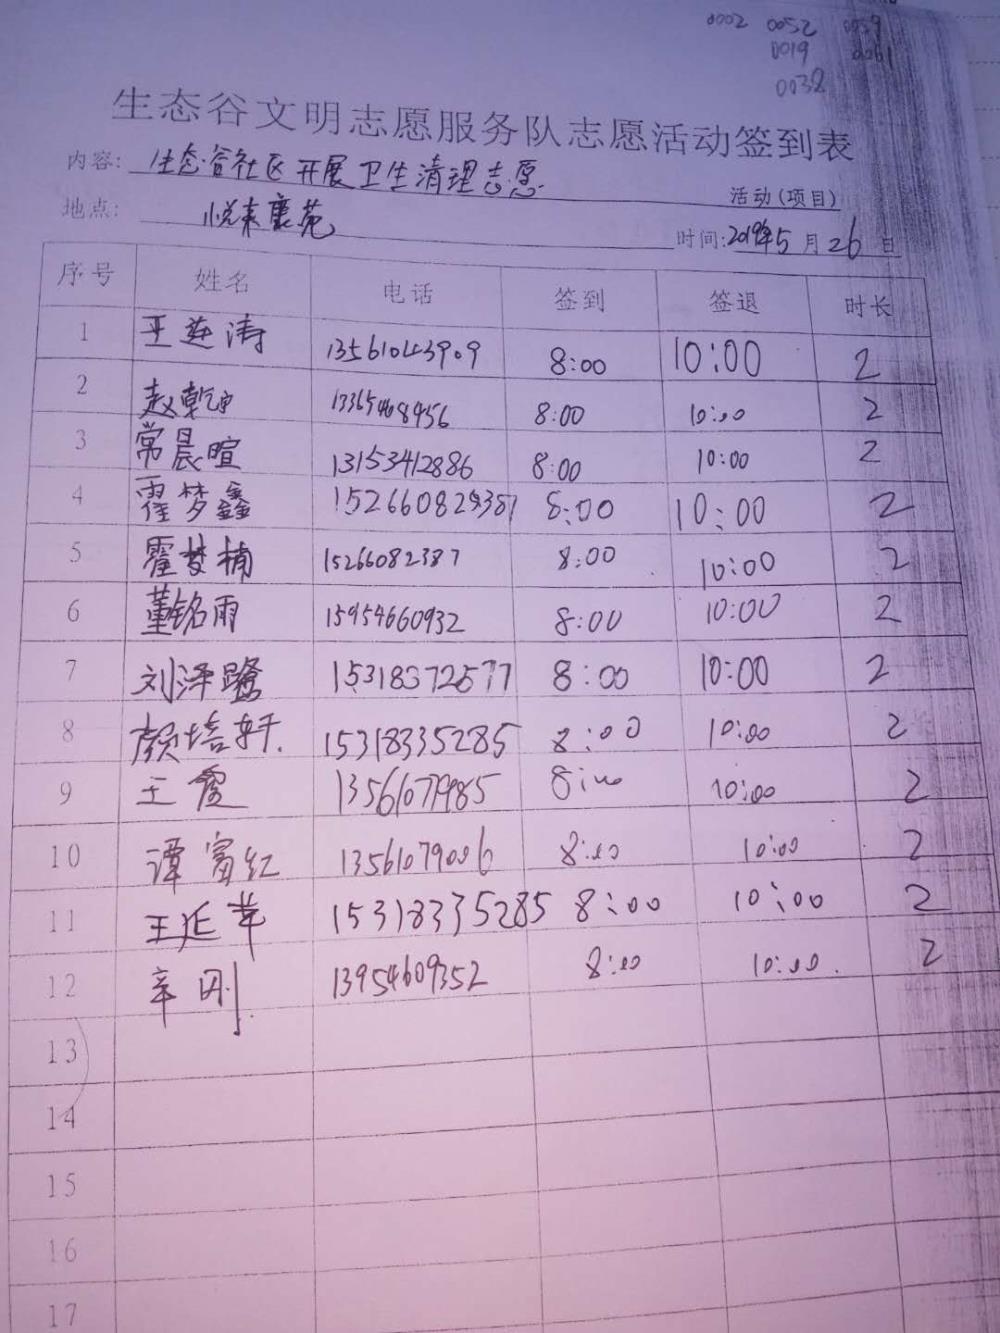 0002 0052 0059
0019 0061
0038
生态谷文明志愿服务队志愿活动签到表
内容: 生态谷社区开展卫生清理志愿 活动(项目)
地点: 悦来康苑 时间:2019年5月26日
序号 姓名 电话 签到 签退 时长
1 王延涛 13561043909 8:00 10:00 2
2 赵乾坤 13365468956 8:00 10:00 2
3 常晨暄 13153412886 8:00 10:00 2
4 霍梦鑫 8:00 10:00 2
5 霍梦楠 15266082387 8:00 10:00 2
6 董铭雨 15954660932 8:00 10:00 2
7 刘泽鹭 15318372577 8:00 10:00 2
8 颜培轩 15318335285 8:00 10:00 2
9 王霞 13561079985 8:00 10:00 2
10 谭富红 13561079006 8:00 10:00 2
11 王延苹 15318335285 8:00 10:00 2
12 辛刚 13954609352 8:00 10:00 2
13
14
15
16
17